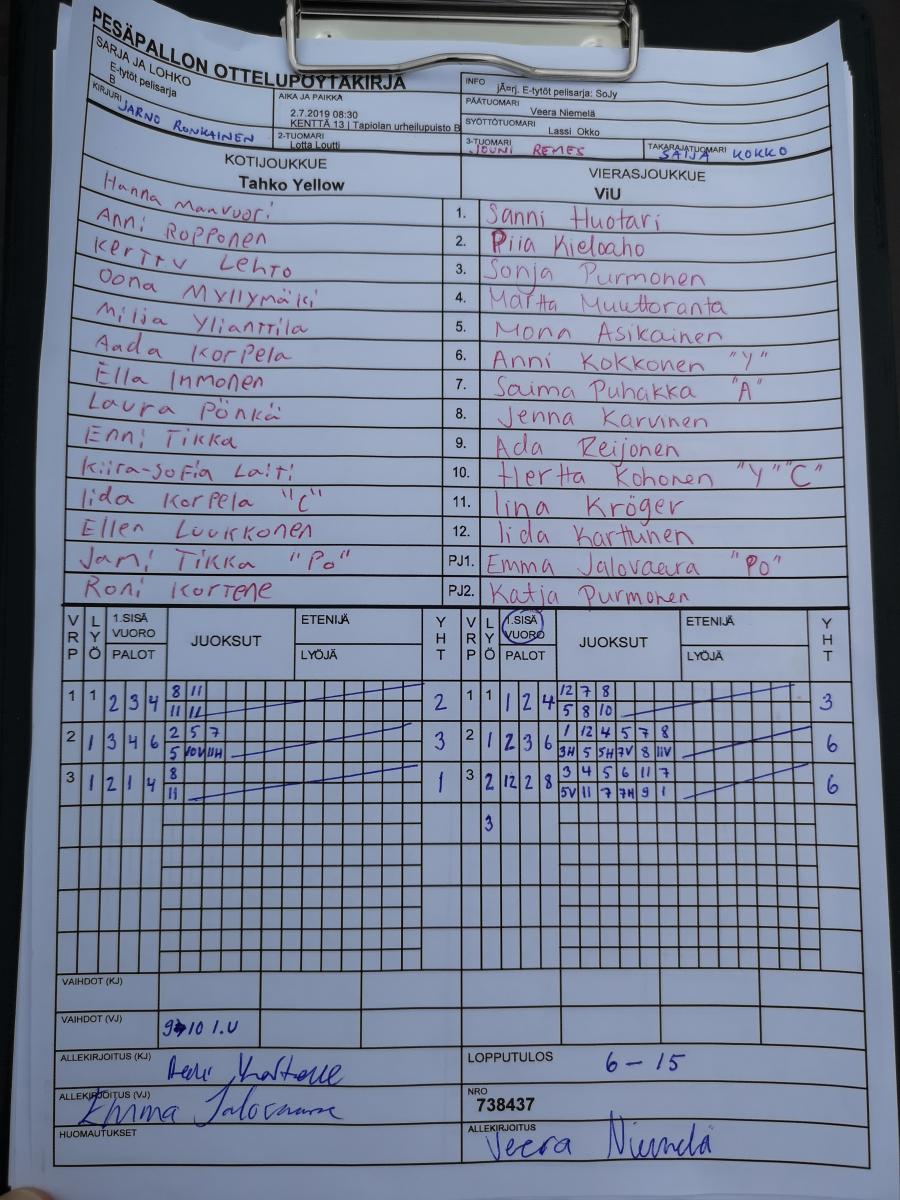 PESÄPALLON OTTELUPÖYTÄKIRJA
SARJA JA LOHKO
E-tytöt pelisarja
B
KIRJURI JARNO RONKAINEN
AIKA JA PAIKKA
2.7.2019 08:30
KENTTÄ 13 | Tapiolan urheilupuisto B
2-TUOMARI
Lotta Loutti
INFO jÄ¤rj. E-tytöt pelisarja: SoJy
PÄÄTUOMARI
Veera Niemelä
SYÖTTÖTUOMARI
Lassi Okko
3-TUOMARI JOUNI REMES
TAKARAJATUOMARI SAIJA KOKKO
KOTIJOUKKUE VIERASJOUKKUE
Tahko Yellow ViU
Hanna Manvuori 1. Sanni Huotari
Anni Ropponen 2. Piia Kieloaho
Kerttu Lehto 3. Sonja Purmonen
Oona Myllymäki 4. Martta Muuttoranta
Milja Ylianttila 5. Mona Asikainen
Aada Korpela 6. Anni Kokkonen "Y"
Ella Inmonen 7. Saima Puhakka "A"
Laura Pönkä 8. Jenna Karvinen
Enni Tikka 9. Ada Reijonen
Kiira-Sofia Laiti 10. Hertta Kohonen "Y" "C"
Iida Korpela "C" 11. Iina Kröger
Ellen Luukkonen 12. Iida Karttunen
Jami Tikka "Po" PJ1. Emma Jalovaara "Po"
Roni Kortene PJ2. Katja Purmonen
VRP LYÖ 1.SISÄ VUORO PALOT JUOKSUT ETENIJÄ LYÖJÄ YHT VRP LYÖ 1.SISÄ VUORO PALOT JUOKSUT ETENIJÄ LYÖJÄ YHT
1 1 2 3 4 8 11 2 1 1 1 2 4 12 7 8 3
11 11 5 8 10
2 1 3 4 6 2 5 7 3 2 1 2 3 6 1 12 4 5 7 8 6
5 10V 11H 3H 5 5H 7V 8 11V
3 1 2 1 4 8 1 3 2 12 2 8 3 4 5 6 11 7 6
11 5V 11 7 7H 9 1
3
VAIHDOT (KJ)
VAIHDOT (VJ) 9→10 1.U
ALLEKIRJOITUS (KJ)
LOPPUTULOS 6-15
ALLEKIRJOITUS (VJ) Emma Jalovaara
NRO
738437
HUOMAUTUKSET
ALLEKIRJOITUS
Veera Niemelä